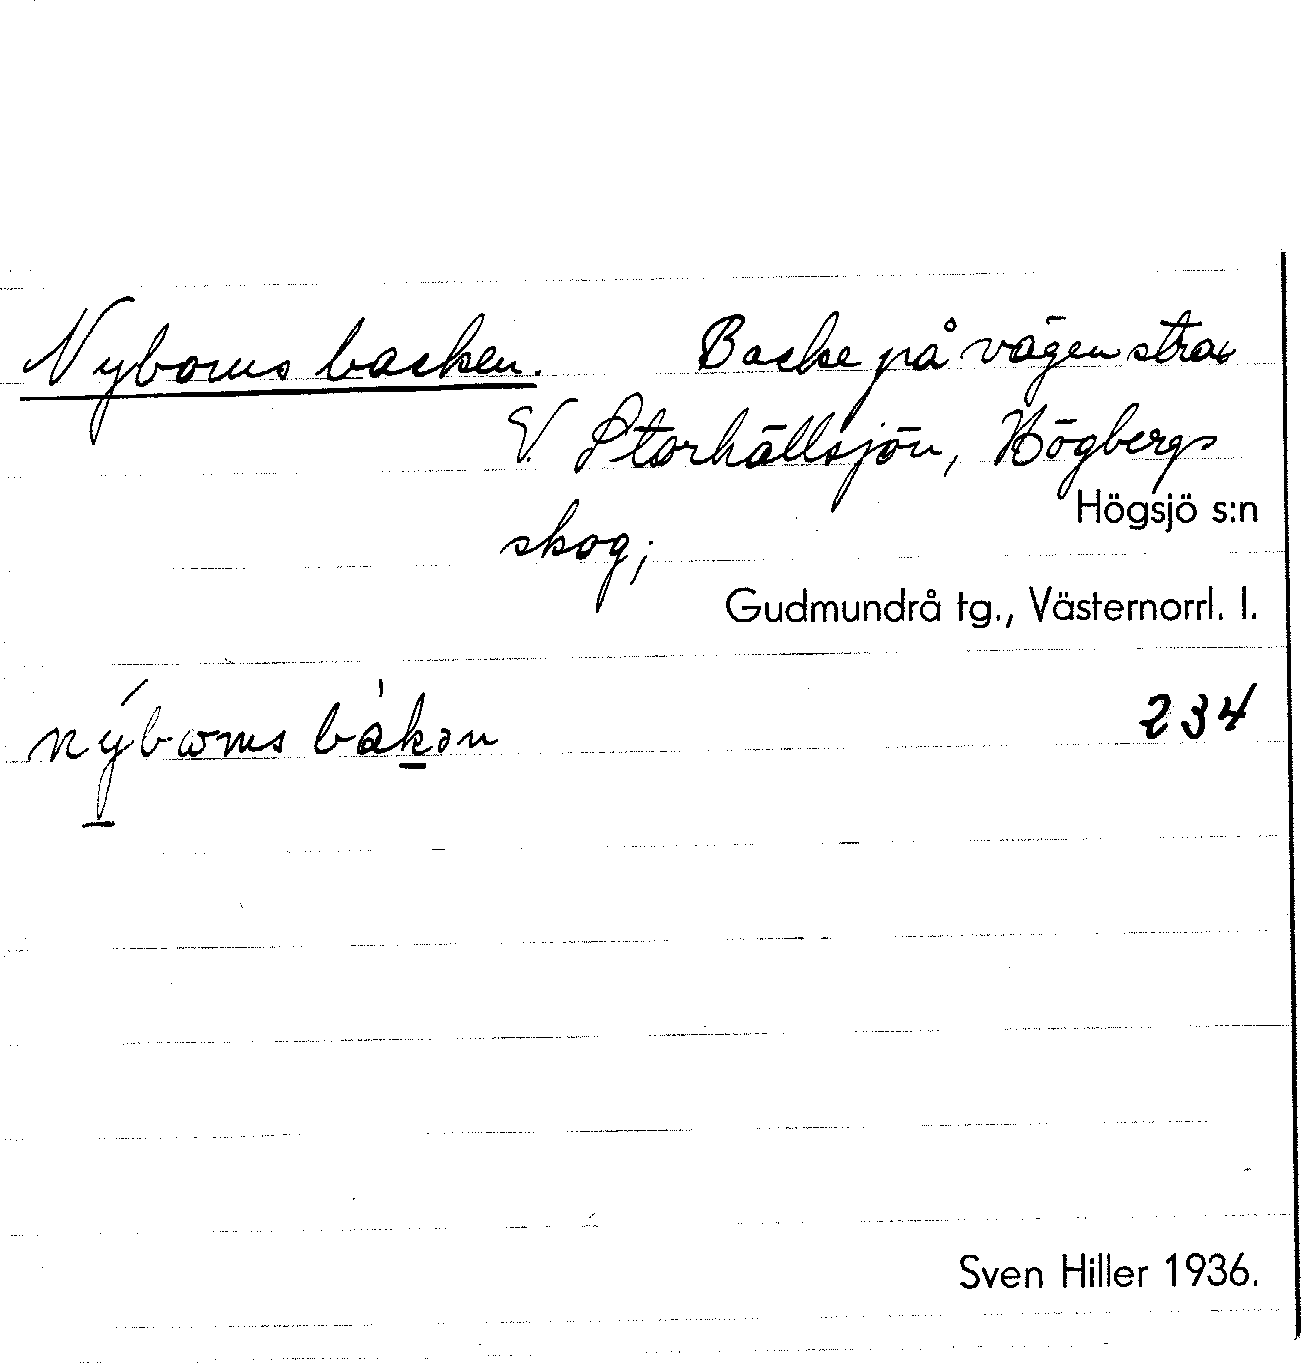 Nyboms backen. Backe på vägen strax
V. Storhällsjön, Högbergs
Högsjö s:n
skog;
Gudmundrå tg., Västernorrl. l.
nýboms bàkən 234
Sven Hiller 1936.